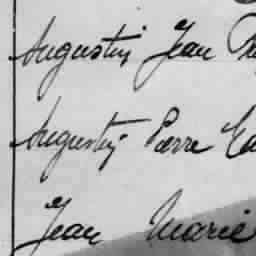 Augustin Jean
Augustin Pierre
Jean Marie